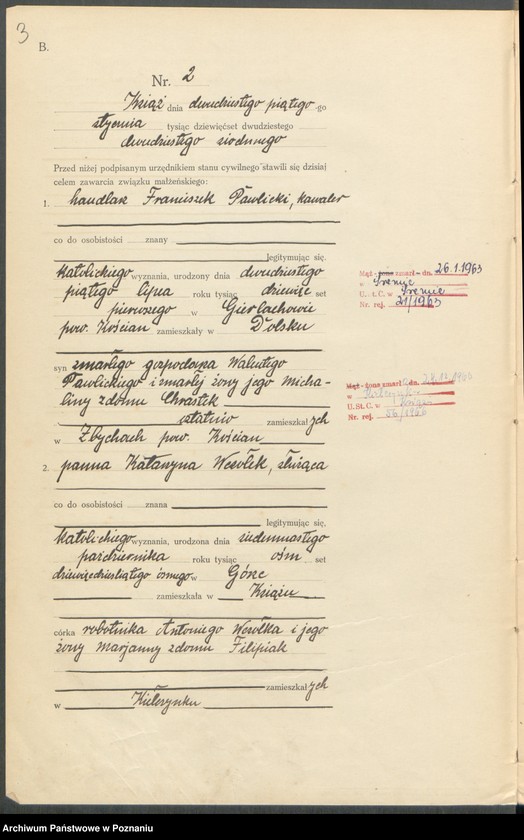 3
B.
Nr. 2
Książ dnia dwudziestego piątego -go
stycznia tysiąc dziewięćset dwudziestego
dwudziestego siodmego
Przed niżej podpisanym urzędnikiem stanu cywilnego stawili się dzisiaj
celem zawarcia związku małżeńskiego:
1. handlarz Franciszek Pawlicki, kawaler
co do osobistości znany
legitymując się.
katolickiego wyznania, urodzony dnia dwudziestego
piątego lipca roku tysiąc dziewięć set
pierwszego w Gierłachowie
pow. Kościan zamieszkały w Dolsku
syn zmarłego gospodarza Walentego
Pawlickiego i zmarłej żony jego Micha-
liny z domu Chrastek
ostatnio zamieszkałych
w Zbychach pow. Kościan
2. panna Katarzyna Wesołek, służąca
co do osobistości znana
legitymując się,
katolickiego wyznania, urodzona dnia siedemnastego
października roku tysiąc ośm set
dziewięćdziesiątego ósmego w Górze
zamieszkała w Książu
córka robotnika Antoniego Wesołka i jego
żony Marjanny z domu Filipiak
zamieszkałych
w Kiełczynku
Mąż - żona zmarł - dn. 26.1.1963
w Śremie
U. S. C. w Śremie
Nr. rej. 21/1963
Mąż - żona zmarł a dn.
w
U. St. C. w Książ
Nr. rej.
Archiwum Państwowe w Poznaniu